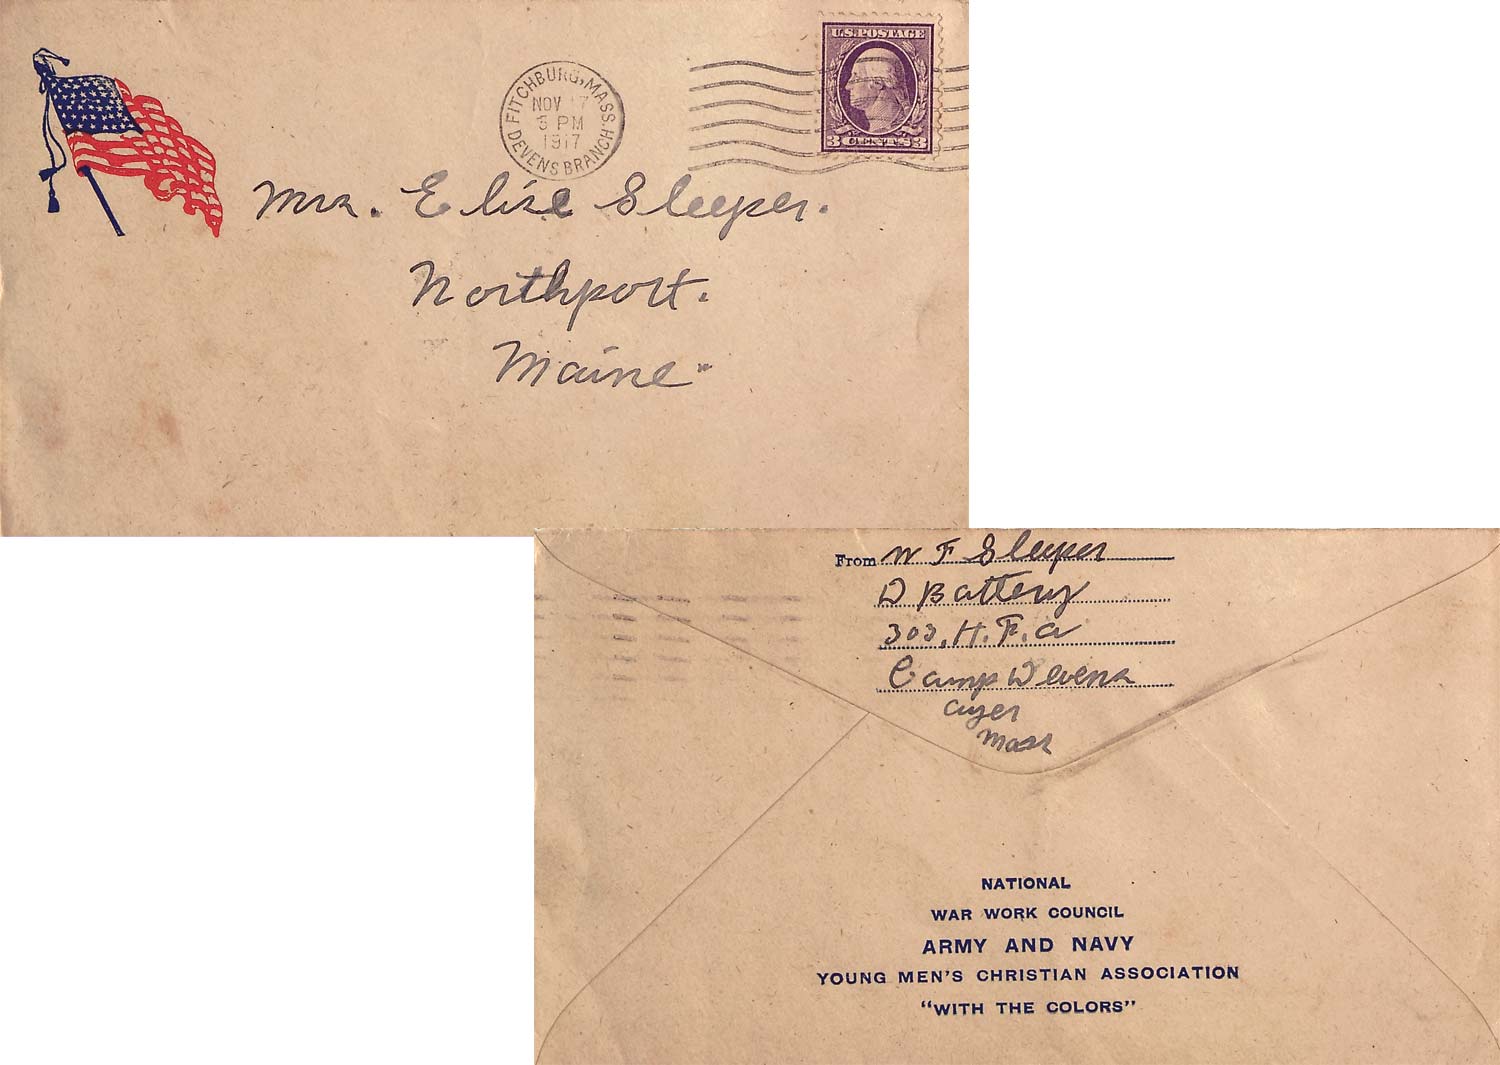 U.S. POSTAGE
3 CENTS 3
FITCHBURG, MASS.
NOV 17
5 PM
1917
DEVENS BRANCH
Mrs. Elise Sleeper.
Northport.
Maine"
From W F Sleeper
D Battery
303, H. F. A
Camp Devens
Ayer
Mass
NATIONAL
WAR WORK COUNCIL
ARMY AND NAVY
YOUNG MEN'S CHRISTIAN ASSOCIATION
"WITH THE COLORS"